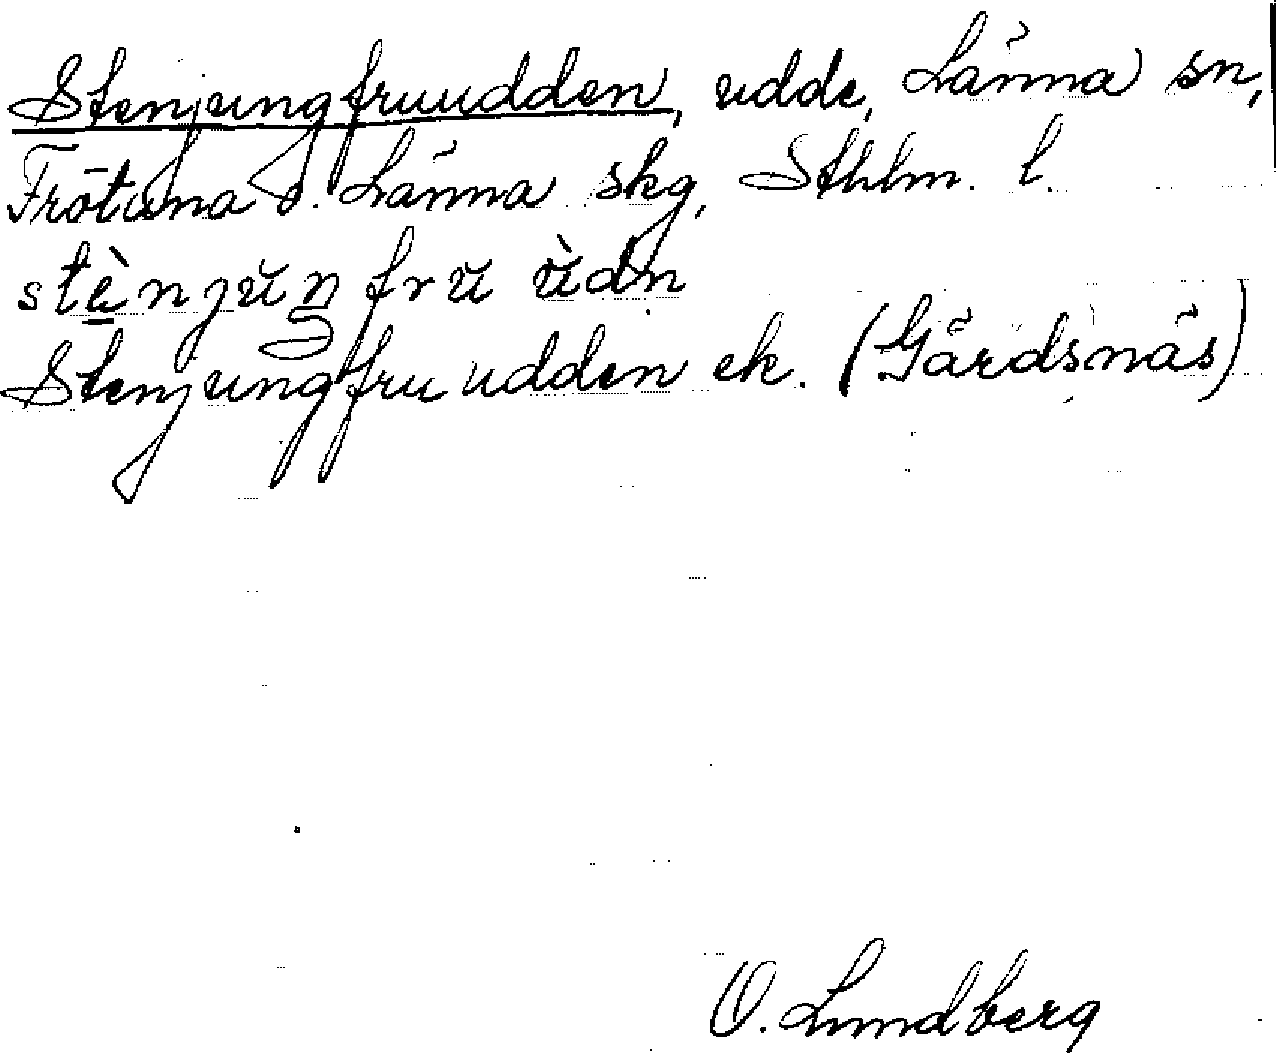 Stenjungfruudden, udde, Länna sn,
Frötuna o. Länna skg, Sthlm. l.
stènjŭŋfrŭ ŭ̀dn
Stenjungfruudden ek. (Gårdsnäs)
O. Lundberg